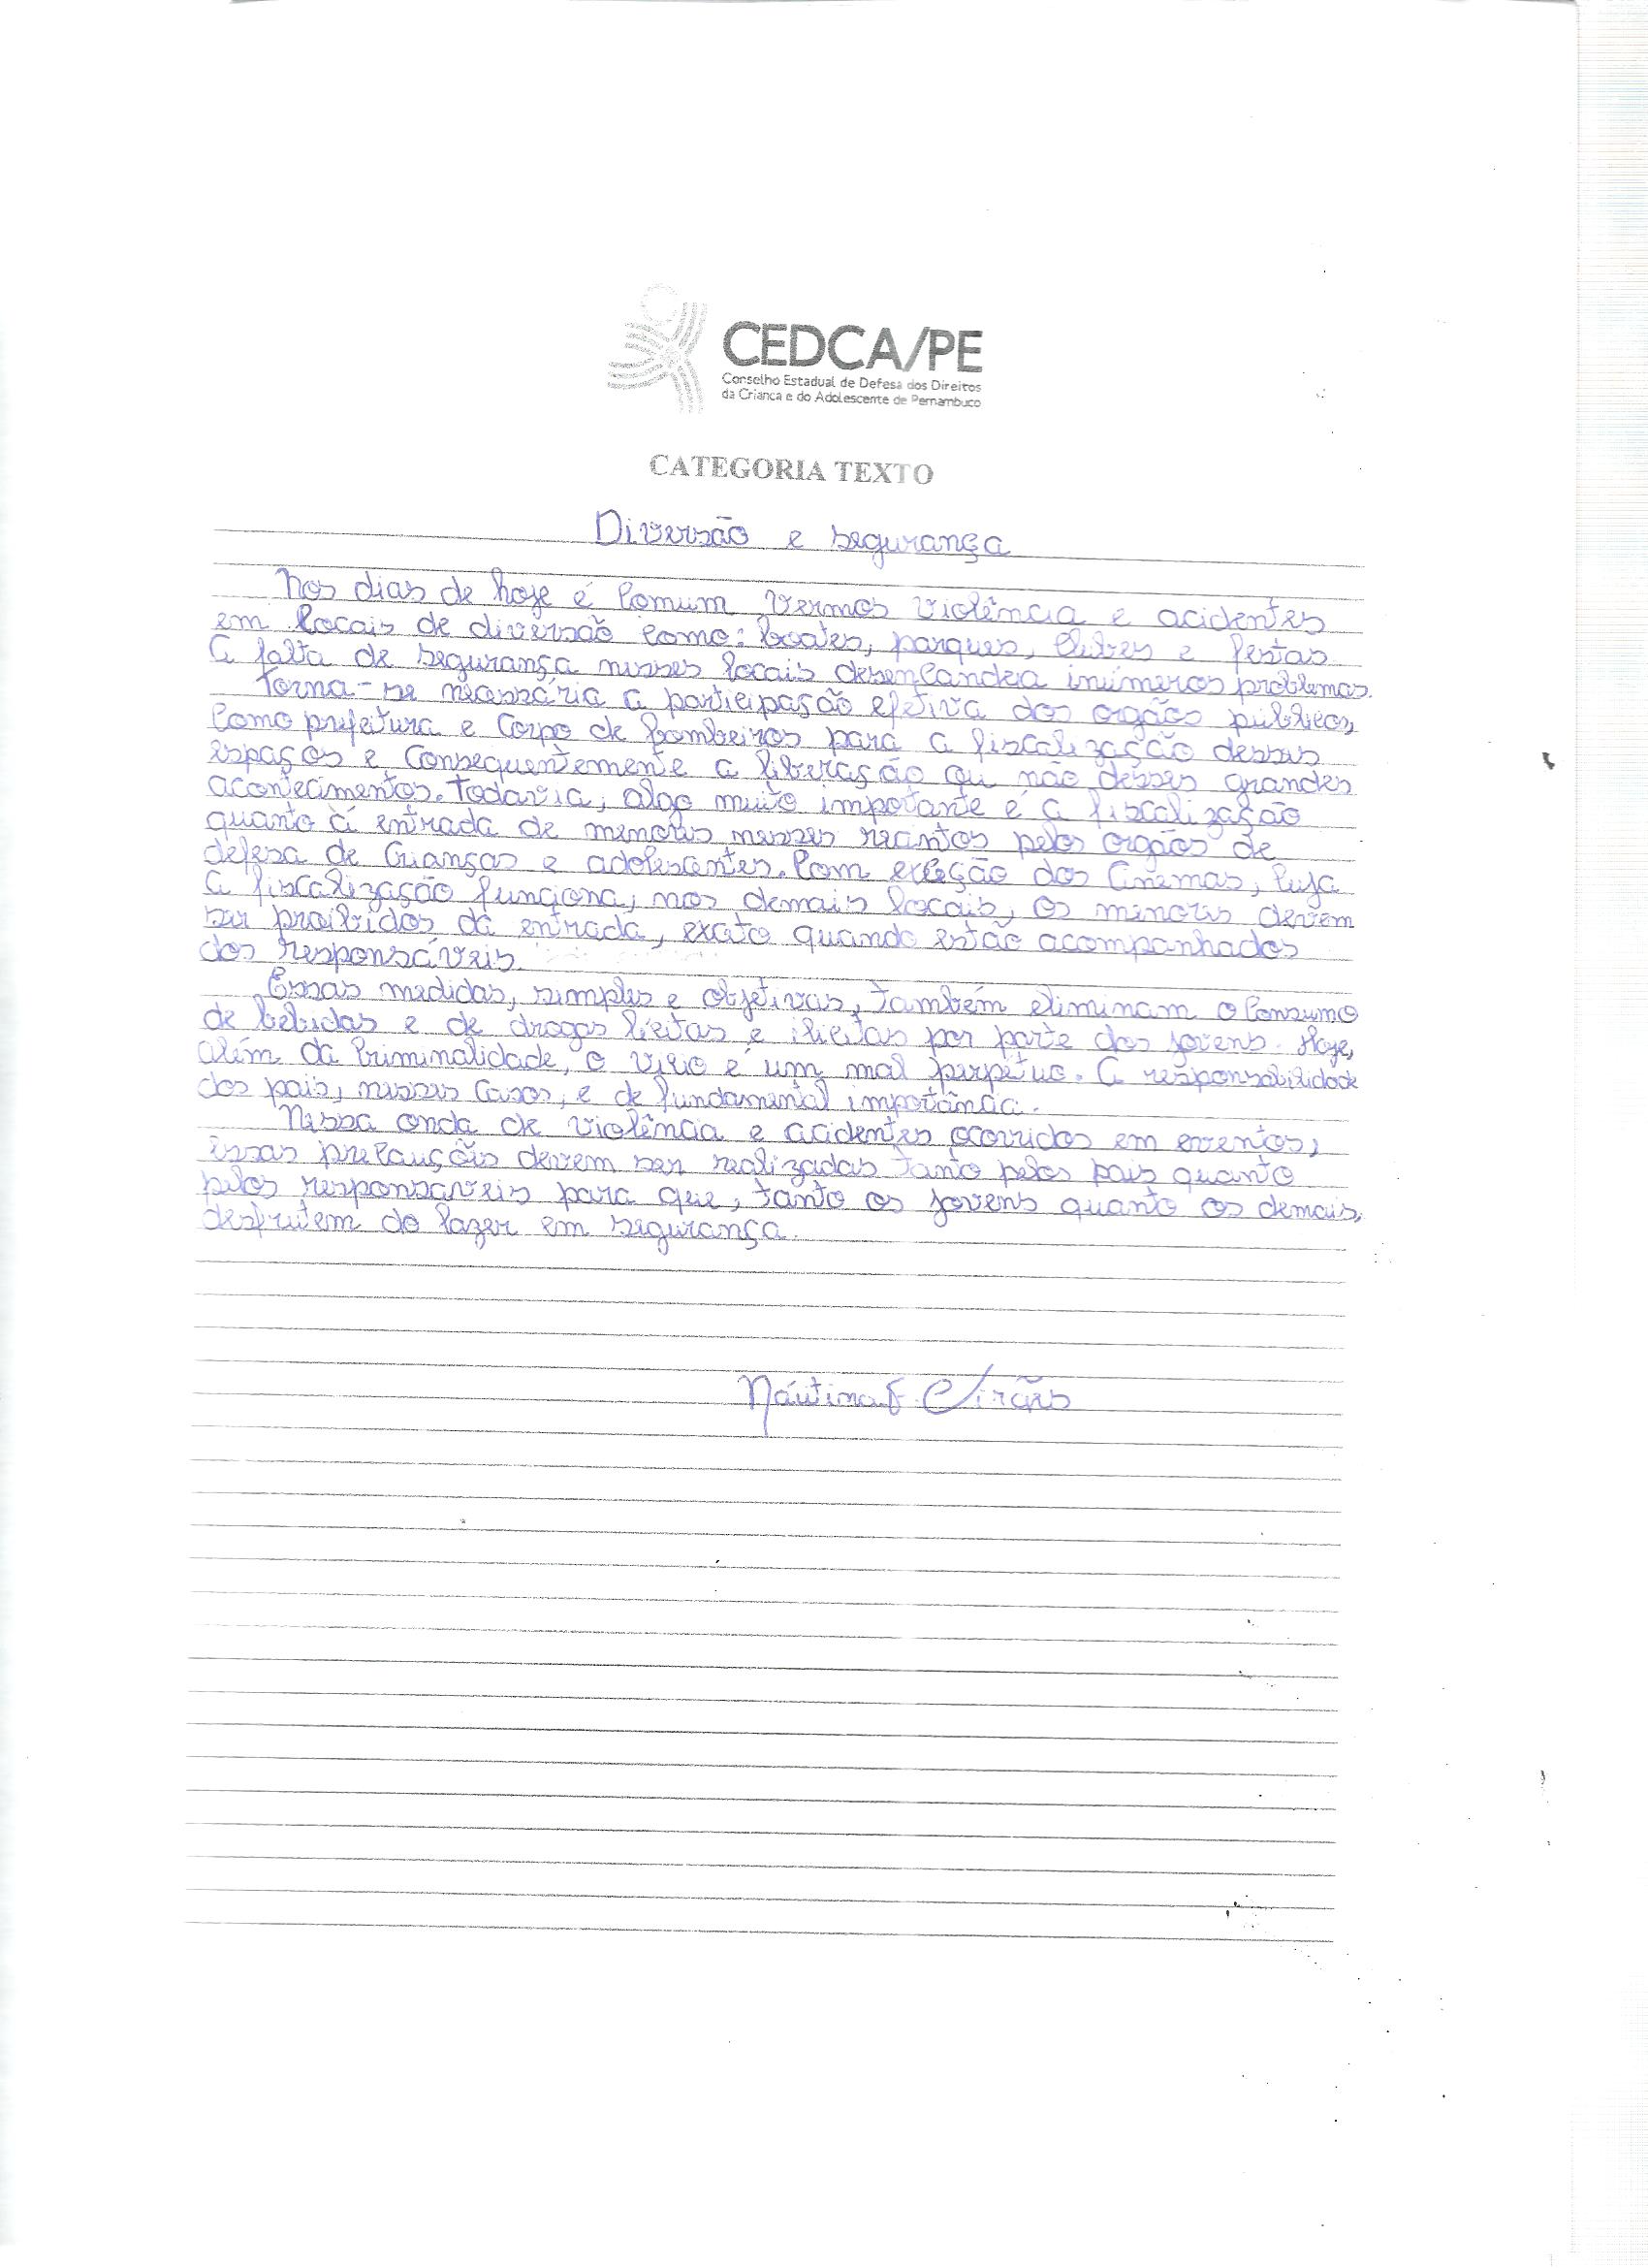 CEDCA/PE
Conselho Estadual de Defesa dos Direitos
da Criança e do Adolescente de Pernambuco
CATEGORIA TEXTO
Diversão e segurança
Nos dias de hoje é comum vermos violência e acidentes
em locais de diversão como: boates, parques, clubes e festas.
A falta de segurança nesses locais desencandeia inúmeros problemas.
Torna-se necessária a participação efetiva dos orgãos públicos,
como prefeitura e corpo de bombeiros para a fiscalização desses
espaços e consequentemente a liberação ou não desses grandes
acontecimentos. Todavia, algo muito importante é a fiscalização
quanto à entrada de menores nesses recintos pelos orgãos de
defesa de crianças e adolescentes. Com exceção dos cinemas, cuja
a fiscalização funciona, nos demais locais, os menores devem
ser proibidos da entrada, exceto quando estão acompanhados
dos responsáveis.
Essas medidas, simples e objetivas, também eliminam o consumo
de bebidas e de drogas lícitas e ilícitas por parte dos jovens. Hoje,
além da criminalidade, o vício é um mal perpétuo. A responsabilidade
dos pais, nesses casos, é de fundamental importância.
Nessa onda de violência e acidentes ocorridos em eventos,
essas precauções devem ser realizadas tanto pelos pais quanto
pelos responsaveis para que, tanto os jovens quanto os demais,
desfrutem do lazer em segurança.